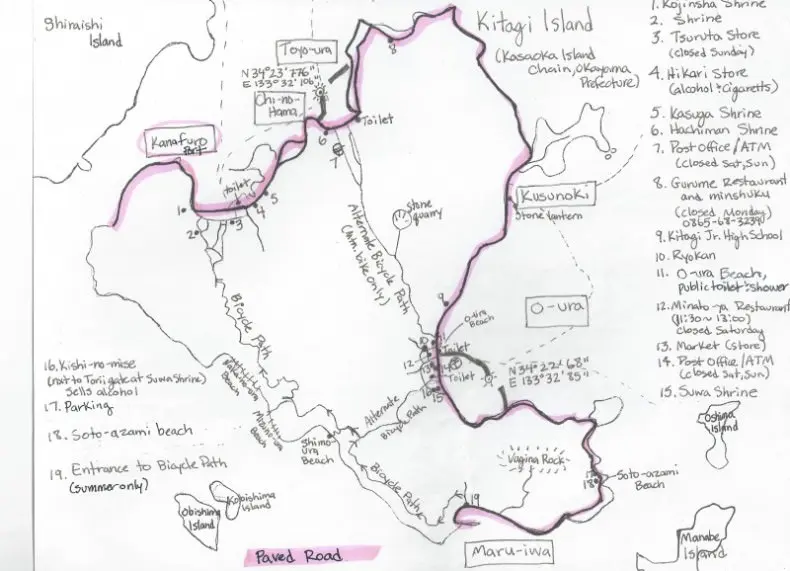 Shiraishi
Island
Toyo-ura
N34°23'776"
E 133°32'106"
Chi-no-
Hama
Kanafuro
Port
Kitagi Island
(Kasaoka Island
Chain, Okayama
Prefecture)
8
Toilet
6
7
toilet
5
4
3
2
1
Stone
quarry
Alternate Bicycle Path
(Mtn. bike only)
Kusunoki
Stone lantern
9
O-ura
O-ura
Beach
10
11
Toilet
12
13
14
Toilet
16
15
N34°22'68"
E 133°32'85"
Bicycle Path
Beach
Beach
Shimo-
ura
Beach
Alternate
Bicycle Path
Bicycle Path
Vagina Rock
17
18
Soto-azami
Beach
19
Maru-iwa
Oshima
Island
Manabe
Island
Obishima
Island
Kobishima
Island
Paved Road
1. Kojinsha Shrine
2. Shrine
3. Tsuruta Store
(closed Sunday)
4. Hikari Store
(alcohol + cigaretts)
5. Kasuga Shrine
6. Hachiman Shrine
7. Post Office/ATM
(closed Sat, Sun)
8. Gurume Restaurant
and minshuku
(closed Monday)
0865-68-3239
9. Kitagi Jr. High School
10. Ryokan
11. O-ura Beach,
public toilet + shower
12. Minato-ya Restaurant
(11:30~13:00)
closed Saturday
13. Market (store)
14. Post Office/ATM
(closed Sat, Sun)
15. Suwa Shrine
16. Kishi-no-mise
(next to Torii gate at Suwa Shrine)
sells alcohol
17. Parking
18. Soto-azami beach
19. Entrance to Bicycle Path
(summer only)